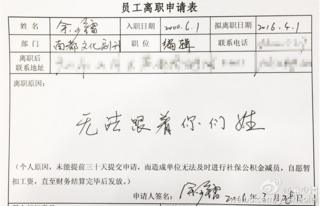 员工离职申请表
姓名 余少镭 入职日期 2000.6.1 拟离职日期 2016.4.1
部门 南都文化副刊 职位 编辑 联系电话
离职后联系地址
离职原因：
无法跟着你们姓
（个人原因，未能提前三十天提交申请，而造成单位无法及时进行社保公积金减员，自愿暂
扣工资，直至财务结算完毕后发放。）
申请人签名： 余少镭 2016年 月 日